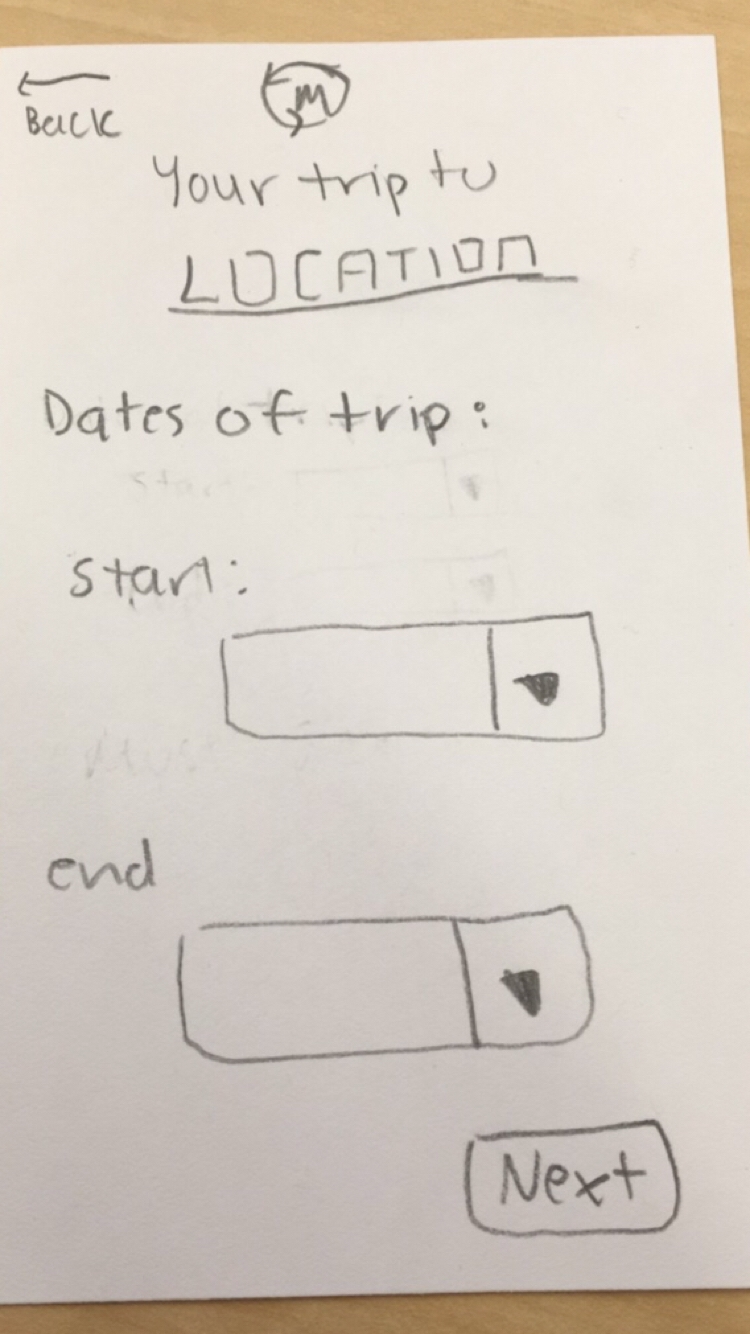 Back
M
Your trip to
LOCATION
Dates of trip:
start:
end
Next